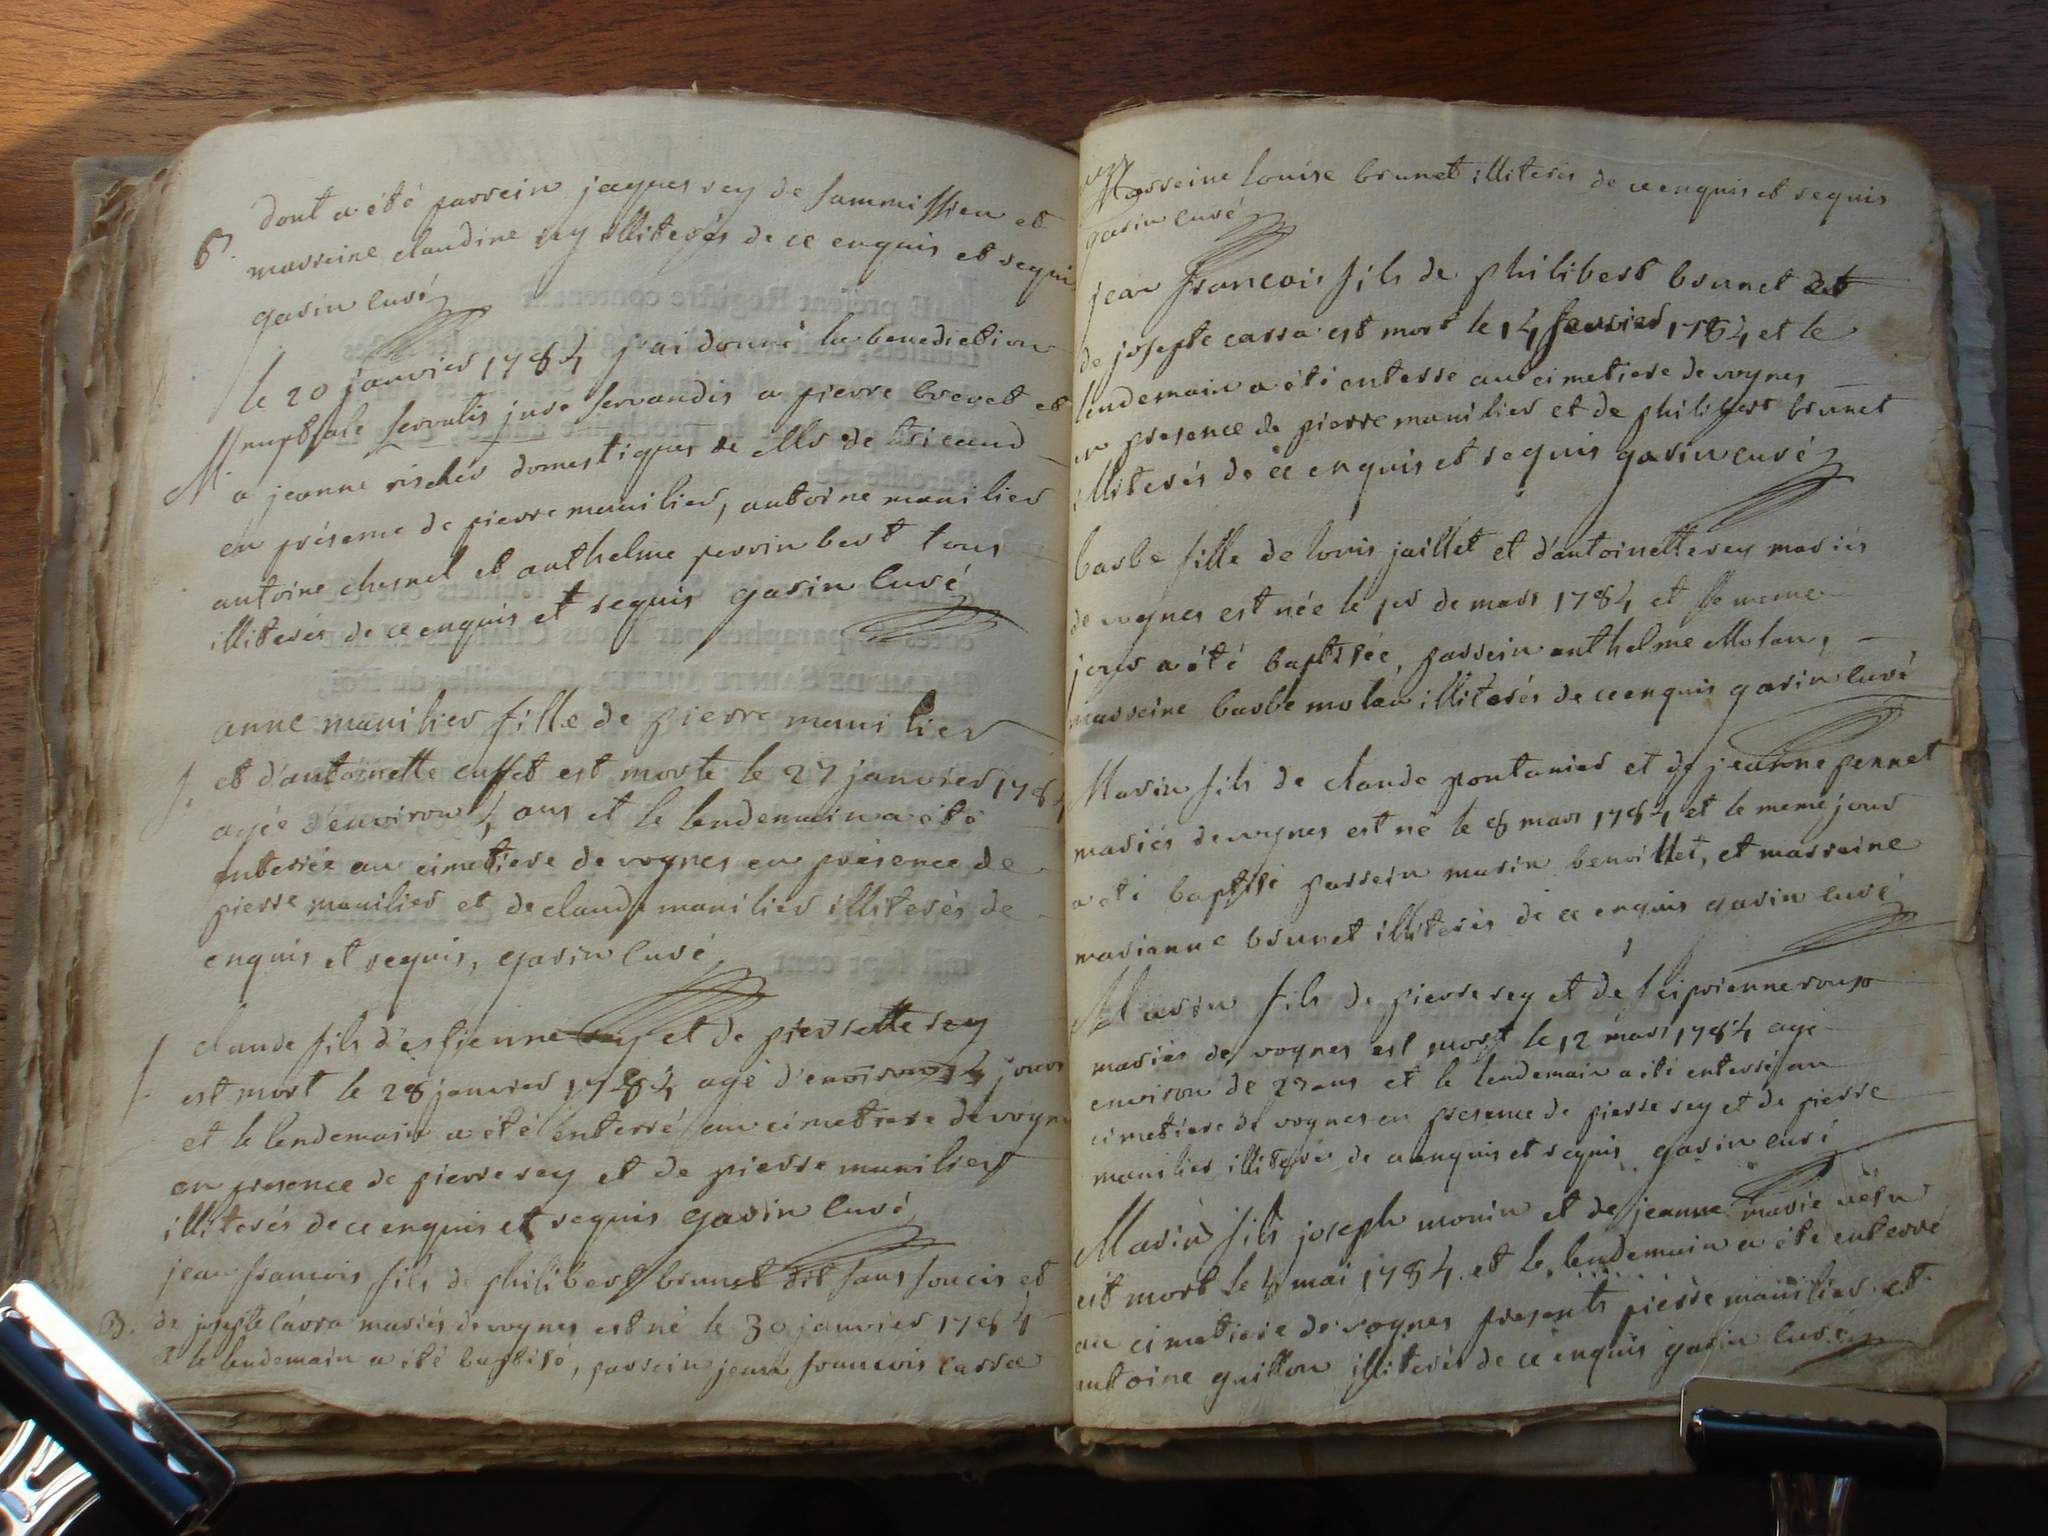 dont a été parrein jaques rey de sammissieu et
B. marreine claudine rey illiterés de ce enquis et requis
garin curé
le 20 janvier 1784 j'ai donné la benediction
nuptiale servatis jure servandis a pierre brevet et
M. a jeanne risches domestiques de Mr de tricaud
en présence de pierre manilier, antoine manilier
antoine chesnel et anthelme perrin bert tous
illiterés de ce enquis et requis garin Curé
anne manilier fille de pierre manilier
f. et d'antoinette cusset est morte le 27 janvier 1784
agée d'environ 4 ans et le lendemain a été
enterrée au cimetiere de vognes en présence de
pierre manilier et de claude manilier illiterés de
enquis et requis, garin Curé
claude fils d'estienne rey et de pierrette rey
f. est mort le 28 janvier 1784 agé d'environ 14 jours
et le lendemain a été enterré au cimetiere de vognes
en presence de pierre rey et de pierre manilier
illiterés de ce enquis et requis garin Curé
jean francois fils de philibert brunet dit sans soucis et
B. de josepte carra mariés de vognes est né le 30 janvier 1784
et le lendemain a été baptisé, parrein jean francois carra
Marreine louise brunet illiterés de ce enquis et requis
garin curé
jean francois fils de philibert brunet et
de josepte carra est mort le 14 fevrier 1784 et le
lendemain a été enterré au cimetiere de vognes
en presence de pierre manilier et de philibert brunet
illiterés de ce enquis et requis garin curé
barbe fille de louis jaillet et d'antoinette rey mariés
de vognes est née le 1er de mars 1784 et le meme
jour a été baptisée, parrein anthelme Molan,
marreine barbe molan illiterés de ce enquis garin curé
Marin fils de claude pontanier et de jeanne pennet
mariés de vognes est né le 8 mars 1784 et le meme jour
a été baptisé parrein marin benoillet, et marreine
marianne brunet illiterés de ce enquis garin curé
Marin fils de pierre rey et de sciprienne roux
mariés de vognes est mort le 12 mars 1784 agé
environ de 27 ans et le lendemain a été enterré au
cimetiere de vognes en presence de pierre rey et de pierre
manilier illiterés de ce enquis et requis garin curé
Marin fils joseph monin et de jeanne marie
est mort le 4 mai 1784. et le lendemain a été enterré
au cimetiere de vognes presents pierre manilier et
antoine guillon illiterés de ce enquis garin curé